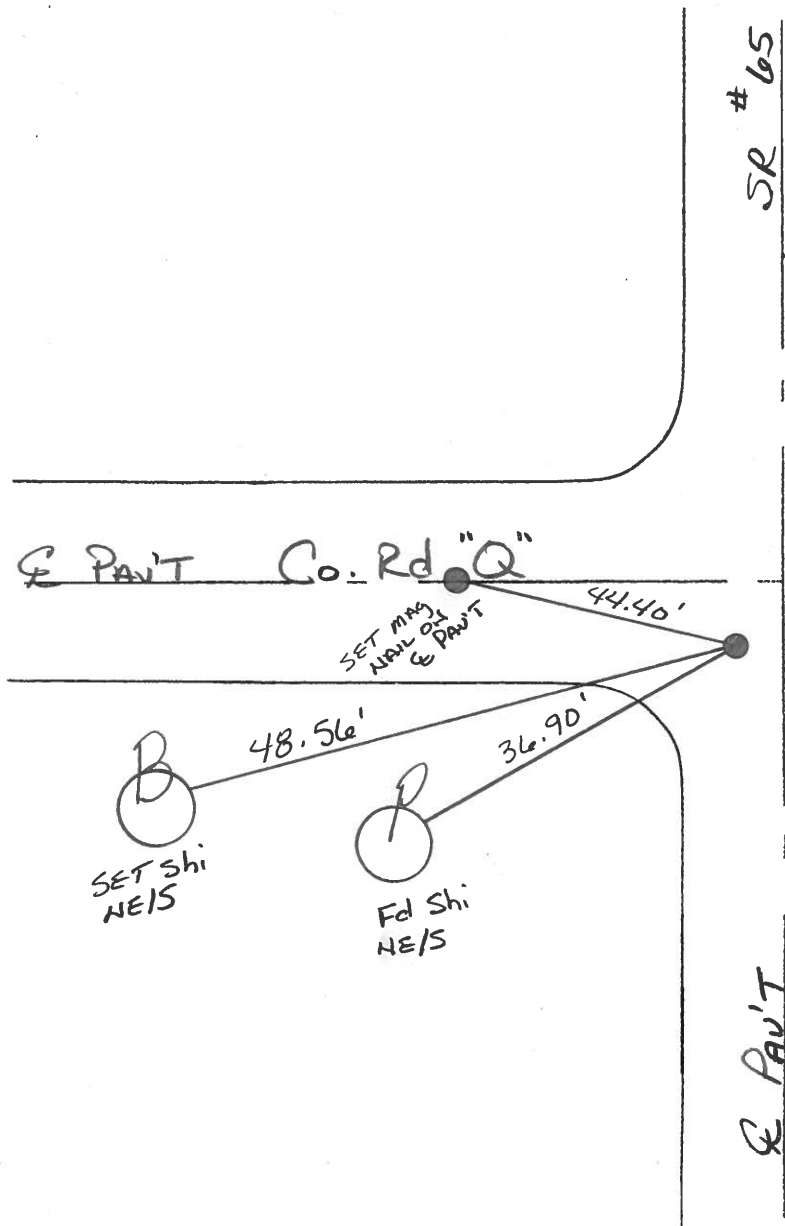 SR #65
℄ PAV'T Co. Rd "Q"
44.40'
SET MAG
NAIL ON
℄ PAV'T
48.56'
36.90'
B
P
SET Shi
NE/S
Fd Shi
NE/S
℄ PAV'T